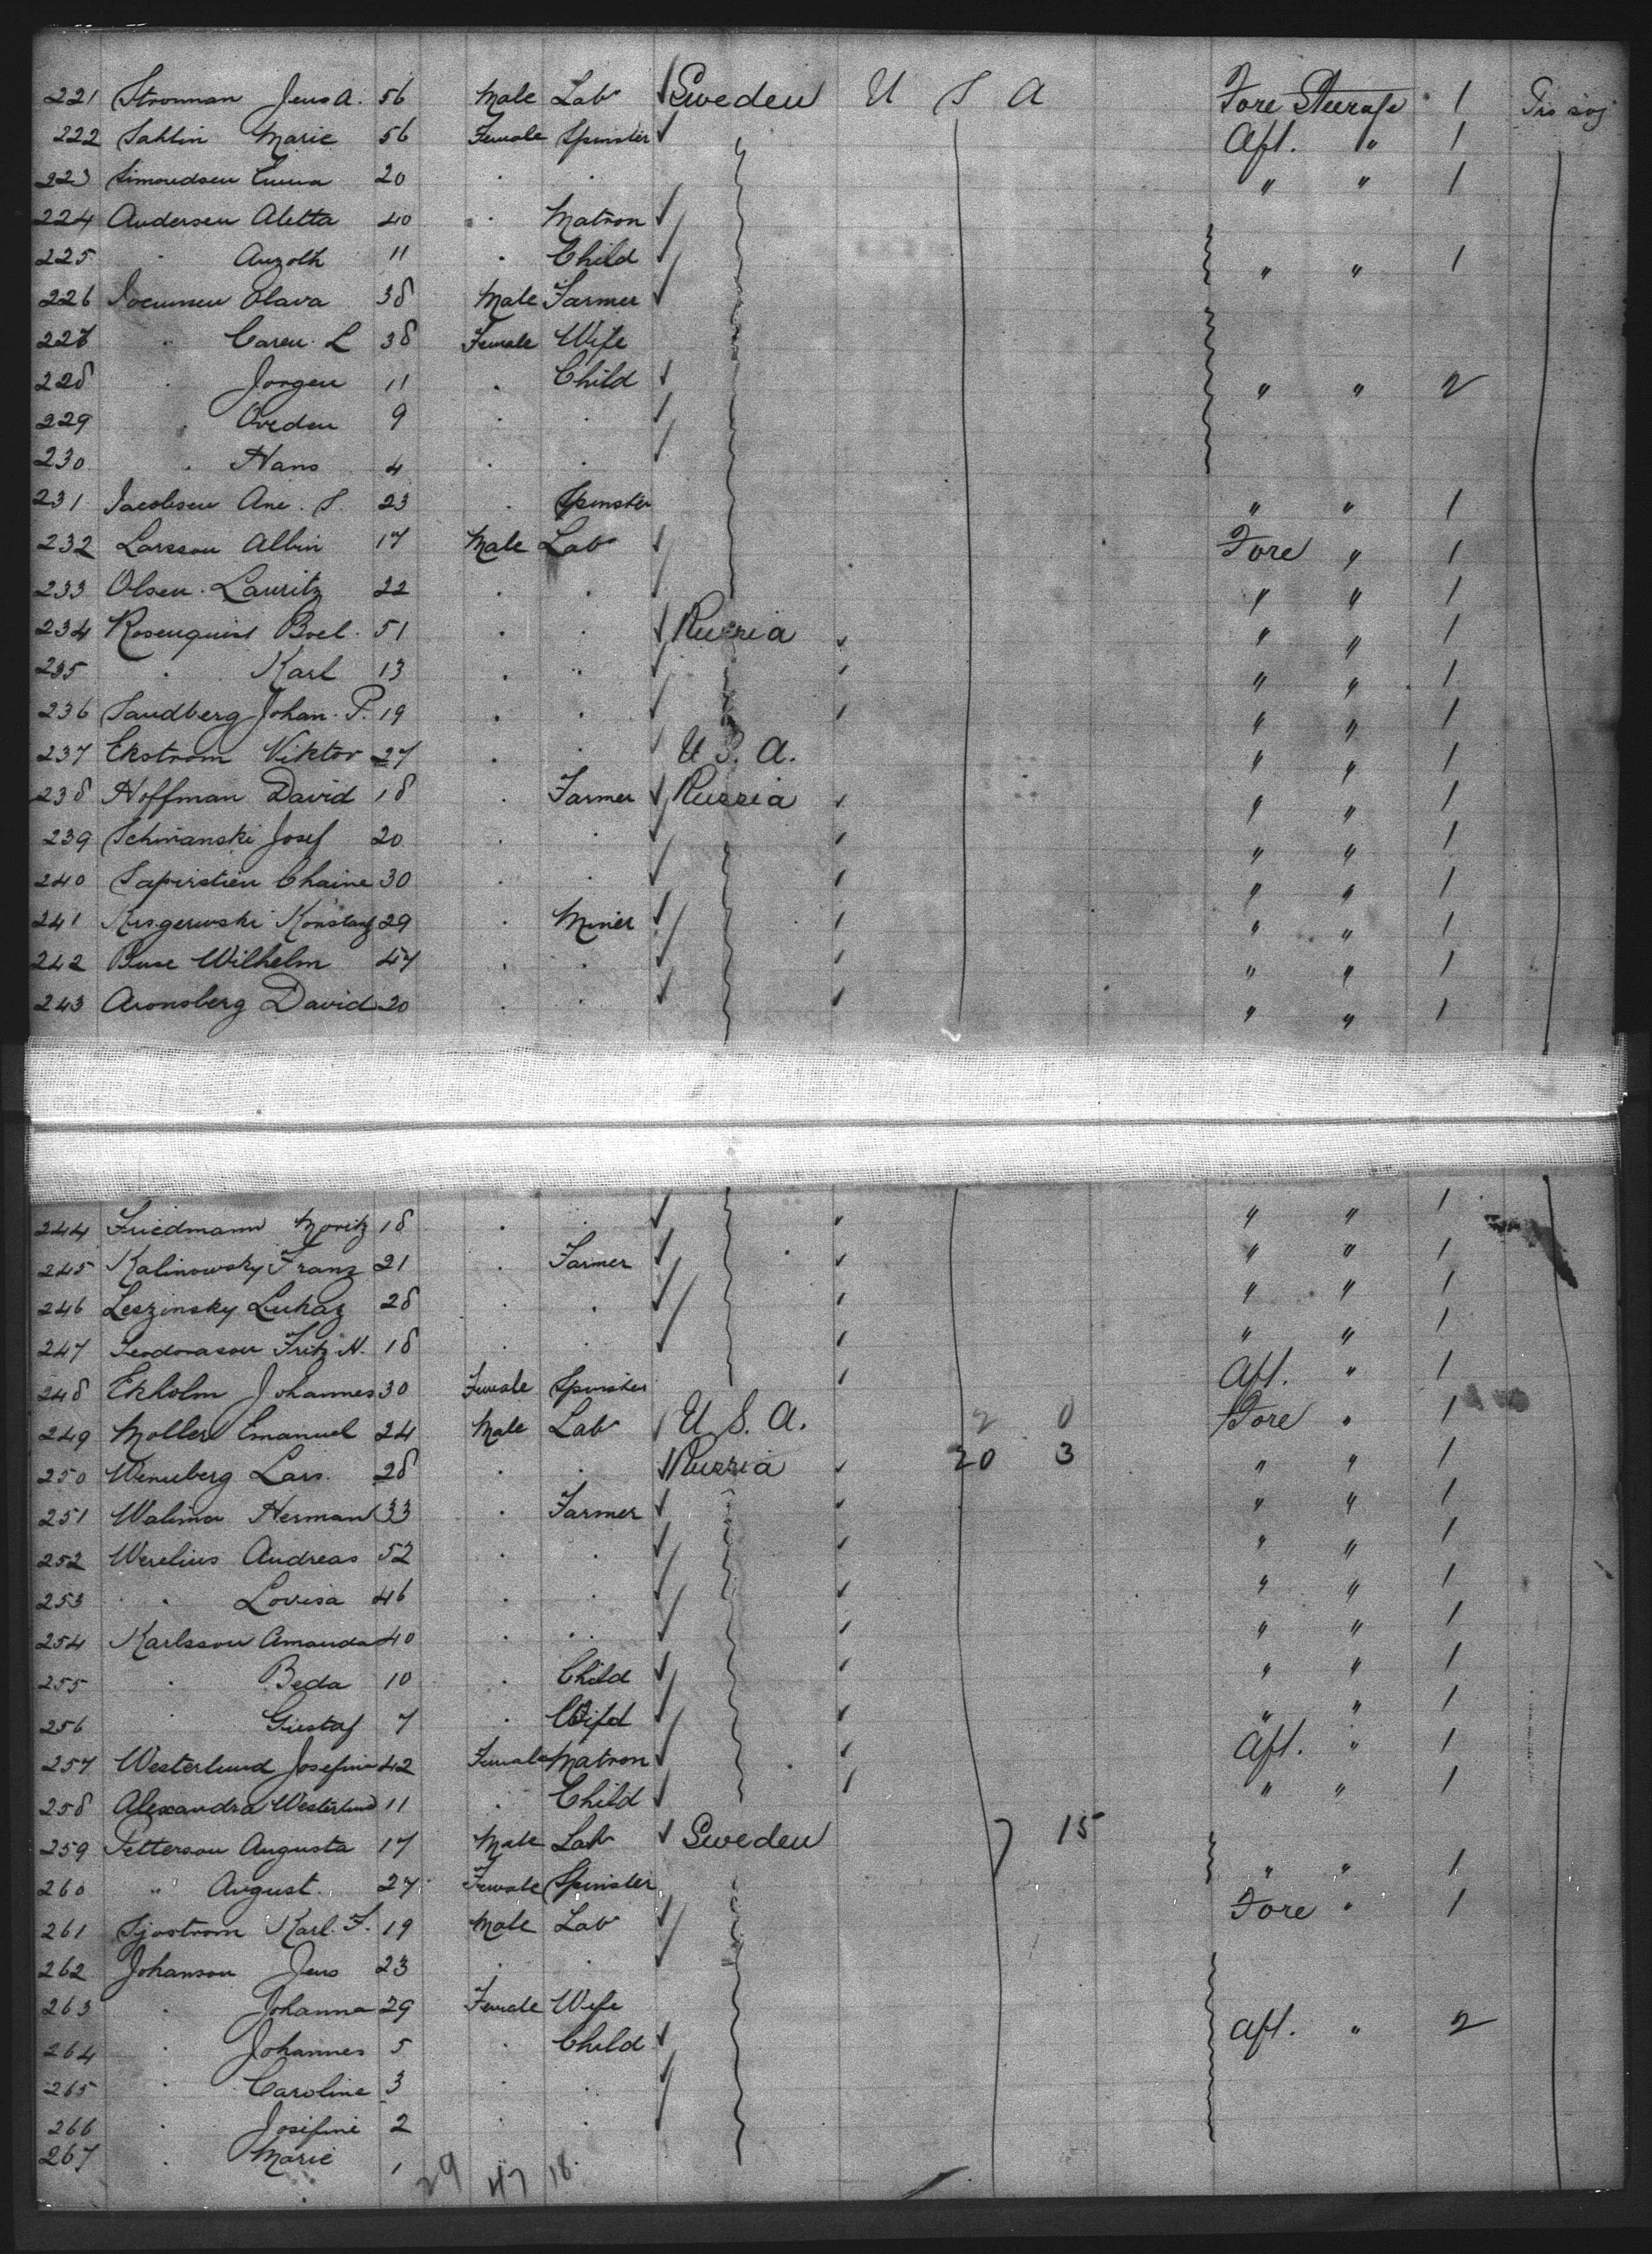 221 Stronman Jens A. 56 Male Lab Sweden U S A Fore Steerage 1
222 Sahlin Marie 56 Female Spinster Aft. " 1
223 Simondsen Emma 20 . . " " 1
224 Andersen Aletta 40 . Matron
225 . Anzoth 11 . Child " " 1
226 Olava 38 Male Farmer
227 . Caren L 38 Female Wife
228 . Jorgen 11 . Child " " 2
229 . Oveden 9 . .
230 . Hans 4 . .
231 Jacobsen Ane. S. 23 . Spinster " " 1
232 Larsson Albin 17 Male Lab Fore " 1
233 Olsen Lauritz 22 . . " " 1
234 Rosenquist Boel. 51 . . Russia " " 1
235 . Karl 13 . . " " 1
236 Sandberg Johan. P. 19 . . " " 1
237 Ekstrom Viktor 27 . . U S. A. " " 1
238 Hoffman David 18 . Farmer Russia " " 1
239 Schwanski Josef 20 . . " " 1
240 Sapirstien Chaine 30 . . " " 1
241 Konstanz 29 . Miner " " 1
242 Buse Wilhelm 47 . . " " 1
243 Aronsberg David 20 . . " " 1
244 Friedmann Moritz 18 . . " " 1
245 Kalinowsky Franz 21 . Farmer " " 1
246 Leszinsky Lukaz 28 . . " " 1
247 Teodorason Fritz H. 18 . . " " 1
248 Ekholm Johannes 30 Female Spinster Aft. " 1
249 Moller Emanuel 24 Male Lab U S. A. 2 0 Fore " 1
250 Wenneberg Lars. 28 . . Russia 20 3 " " 1
251 Walima Herman 33 . Farmer " " 1
252 Werelius Andreas 52 . . " " 1
253 . Lovisa 46 . . " " 1
254 Karlsson Amanda 40 . . " " 1
255 . Beda 10 . Child " " 1
256 . Gustaf 7 . Child " " 1
257 Westerlund Josefina 42 Female Matron Aft. " 1
258 Alexandra Westerlund 11 . Child " " 1
259 Petterson Augusta 17 Male Lab Sweden 7 15
260 " August. 27 Female Spinster " " 1
261 Sjostrom Karl. F. 19 Male Lab Fore " 1
262 Johanson Jens 23 . .
263 . Johanna 29 Female Wife
264 . Johannes 5 . Child Aft. " 2
265 . Caroline 3 . .
266 . Josifine 2 . .
267 . Marie 1
29 47 18.